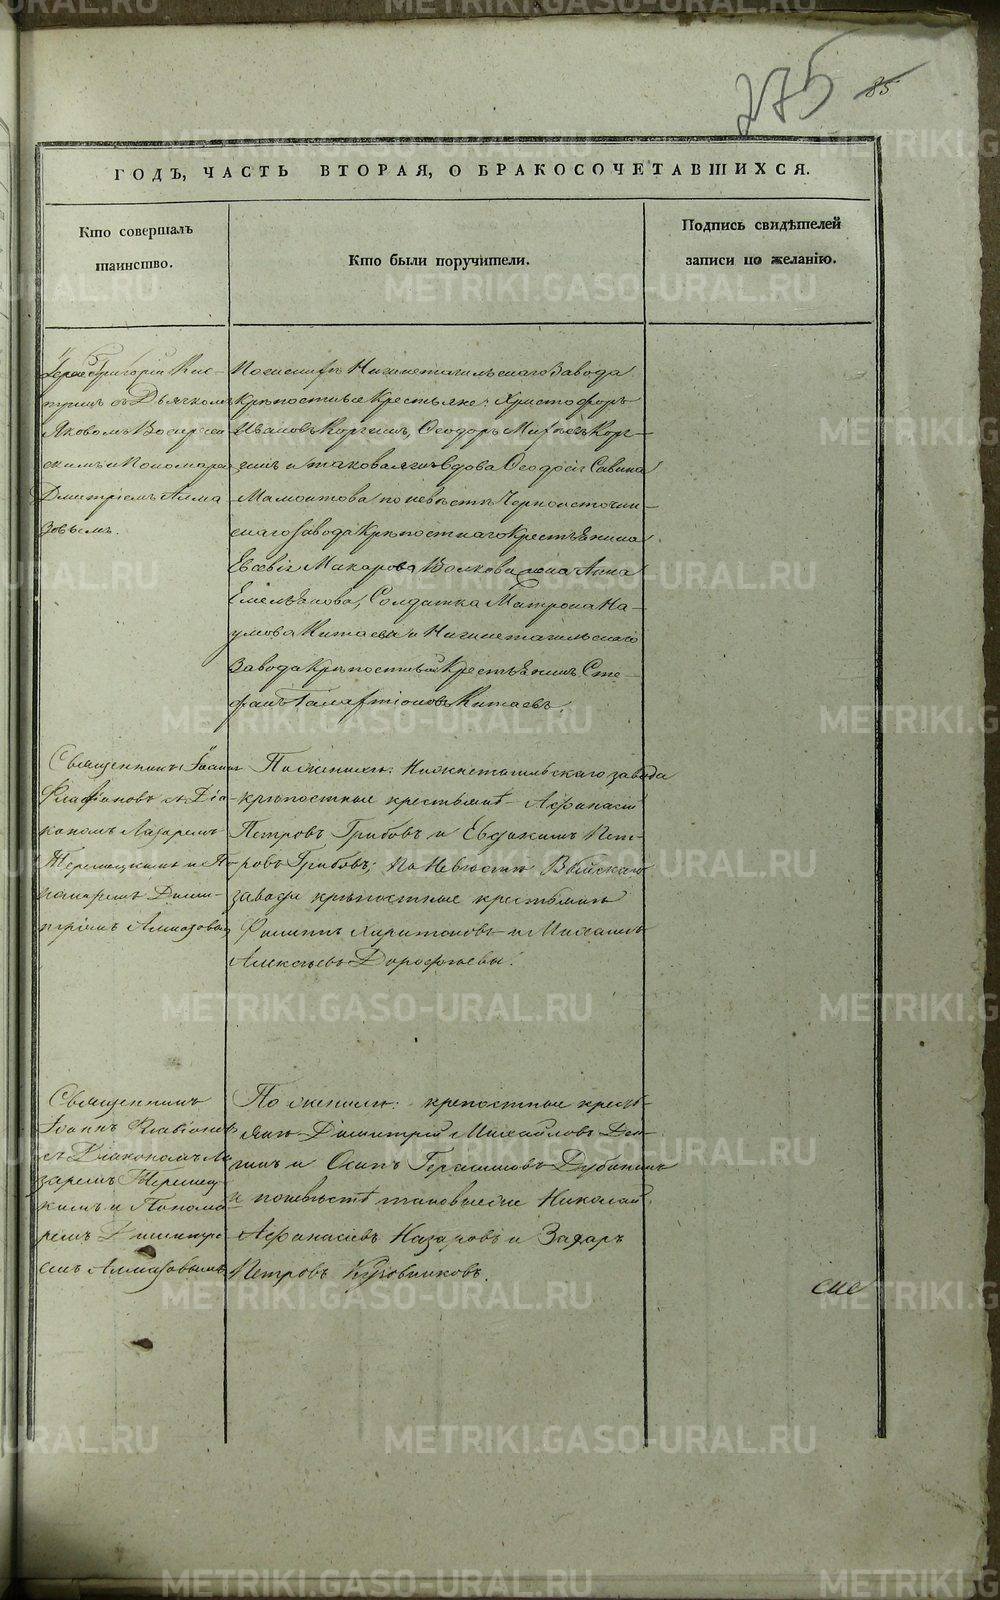 275 85
ГОДЪ, ЧАСТЬ ВТОРАЯ, О БРАКОСОЧЕТАВШИХСЯ.
Кто совершалъ
таинство.
Кто были поручители.
Подпись свидѣтелей
записи по желанію.
Іерей Григорій Кис-
съ Дьячкомъ
Яковомъ
скимъ и Пономаре
Дмитріемъ Алма
зовымъ.
По женихѣ Нижнетагильскаго Завода
Крѣпостные Крестьяне: Христофоръ
Ивановъ Феодоръ
и таковая жъ Вдова Феодосія Савина
Мамонтова; по невѣстѣ Черноисточин-
скаго Завода Крѣпостнаго Крестьянина
Евсевія Макарова Волкова жена Анна
Емельянова, Солдатка Матрона На-
умова Китаева и Нижнетагильскаго
Завода Крѣпостный Крестьянинъ Сте-
фанъ Китаевъ.
Священникъ Іоаннъ
Флавіановъ съ Діа-
кономъ Лазаремъ
и По-
номаремъ Дими-
тріемъ Алмазовым
По женихѣ: Нижнетагильскаго завода
крѣпостные крестьянѣ Афанасій
Петровъ Грибовъ и Евдокимъ Пет-
ровъ Грибовъ; По Невѣстѣ Выйскаго
завода крѣпостные крестьянѣ
Филиппъ Харитоновъ и Михаилъ
Алексѣевъ Дорофѣевы.
Священникъ
Іоаннъ Флавіановъ
съ Діакономъ Ла
заремъ
кимъ и Понома
ремъ Димитрі
емъ Алмазовымъ
По женихѣ: крепостные кресть-
янѣ Димитрій Михайловъ
и Осипъ Герасимовъ Дубининъ
и по невѣстѣ таковыеже Николай
Афанасіевъ Назаровъ и Захаръ
Петровъ
METRIKI.GASO-URAL.RU